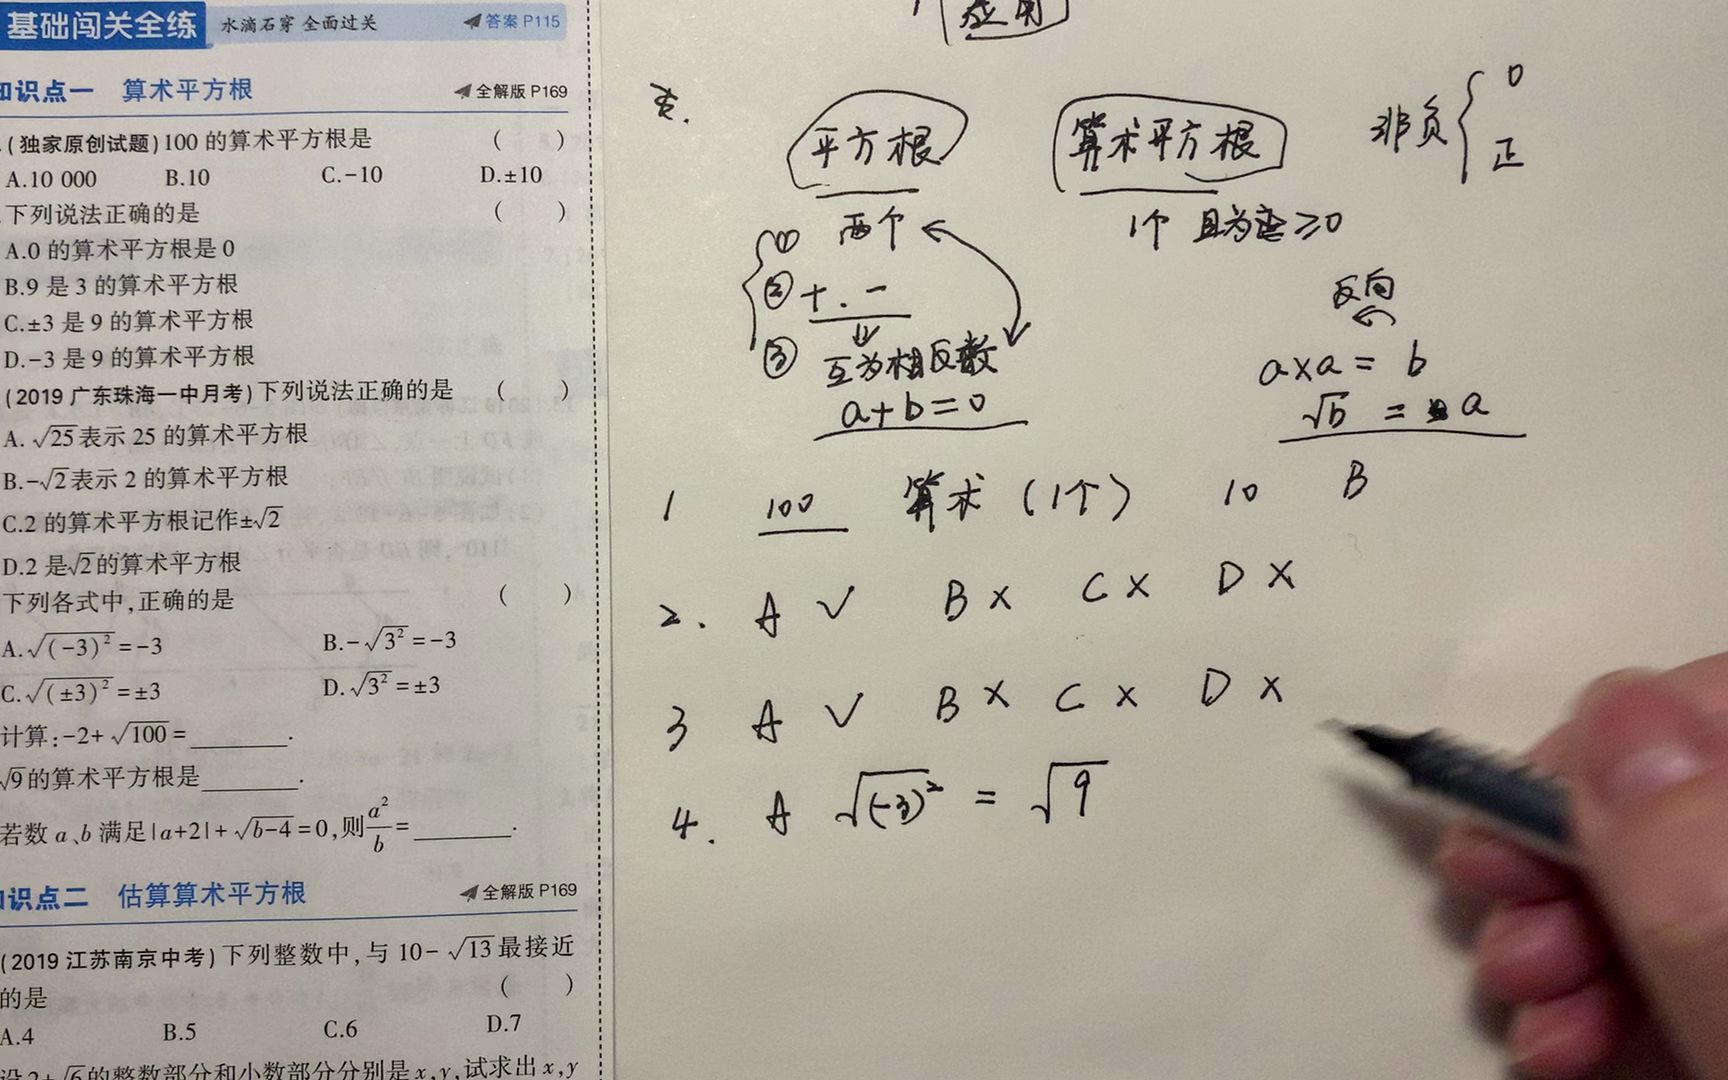 基础闯关全练 水滴石穿 全面过关 答案 P115
知识点一 算术平方根 全解版 P169
(独家原创试题)100 的算术平方根是 ( )
A.10 000 B.10 C.-10 D.±10
下列说法正确的是 ( )
A.0 的算术平方根是 0
B.9 是 3 的算术平方根
C.±3 是 9 的算术平方根
D.-3 是 9 的算术平方根
(2019 广东珠海一中月考)下列说法正确的是 ( )
A.√25表示 25 的算术平方根
B.-√2表示 2 的算术平方根
C.2 的算术平方根记作±√2
D.2 是√2的算术平方根
下列各式中,正确的是 ( )
A.√(-3)²=-3 B.-√3²=-3
C.√(±3)²=±3 D.√3²=±3
计算:-2+√100=______.
√9的算术平方根是______.
若数 a、b 满足|a+2|+√b-4=0,则a²/b=______.
知识点二 估算算术平方根 全解版 P169
(2019 江苏南京中考)下列整数中,与 10-√13最接近
的是 ( )
A.4 B.5 C.6 D.7
设 2+√6的整数部分和小数部分分别是 x,y,试求出 x,y
应用
平方根 算术平方根 非负 { 0 正
① 两个 1个 且为 ≥0
② +.-
③ 互为相反数
a+b=0
反向
a×a= b
√b = a
1 100 算术 (1个) 10 B
2. A √ B × C × D ×
3 A √ B × C × D ×
4. A √(-3)² = √9